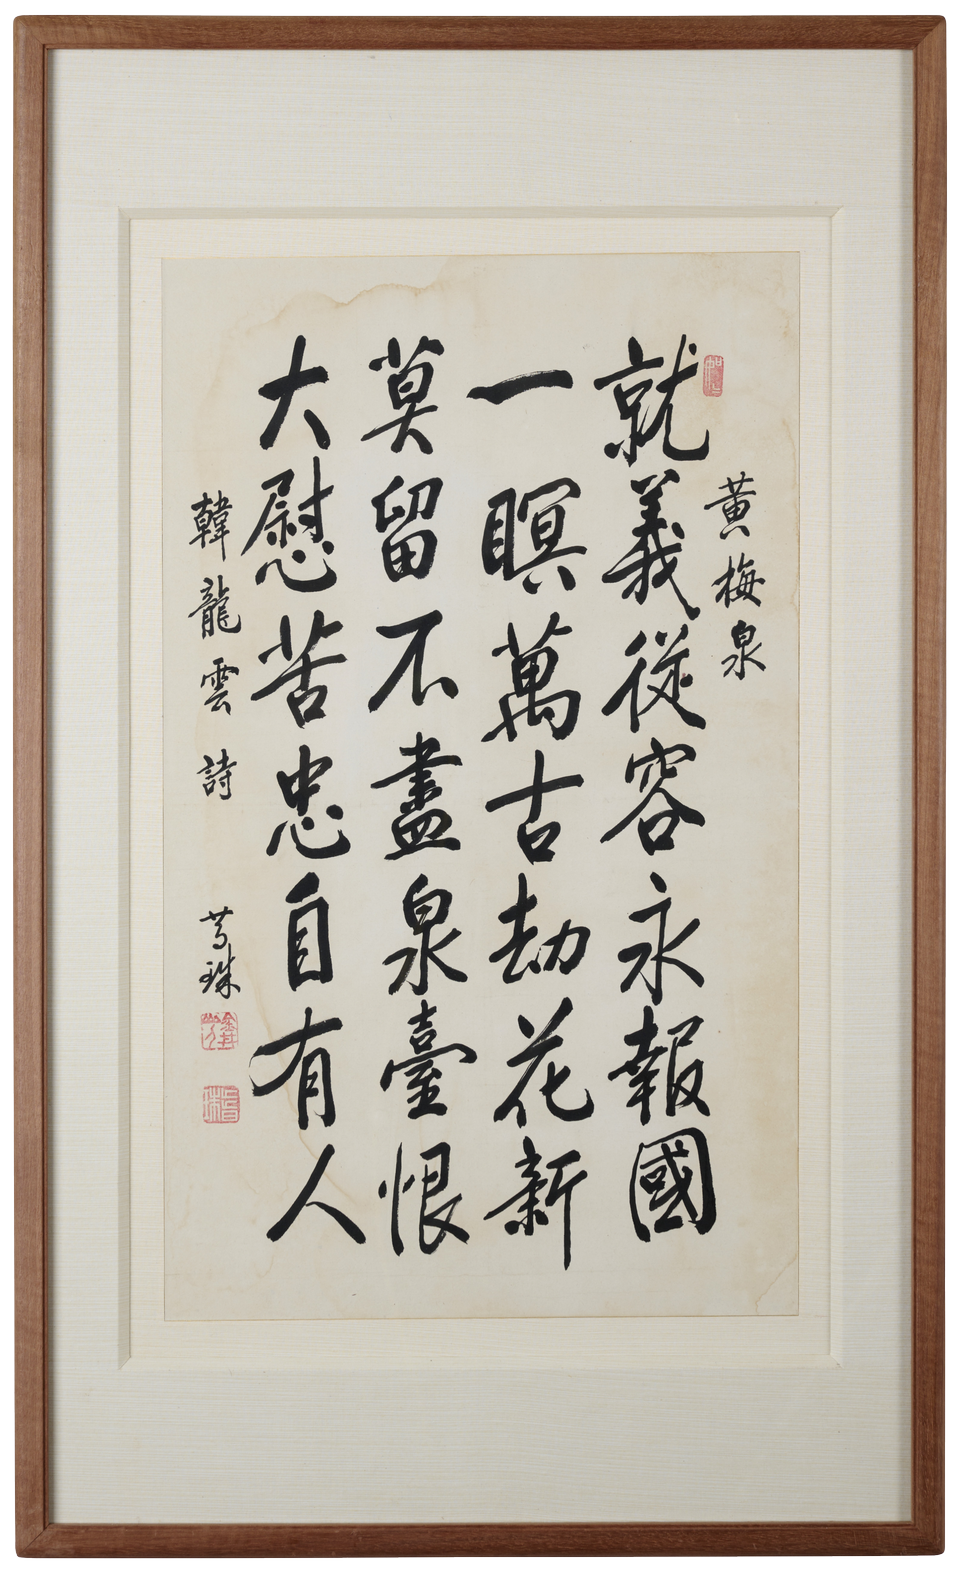 黄梅泉
就義從容永報國
一瞑萬古劫花新
莫留不盡泉臺恨
大慰苦忠自有人
韓龍雲 詩
珠